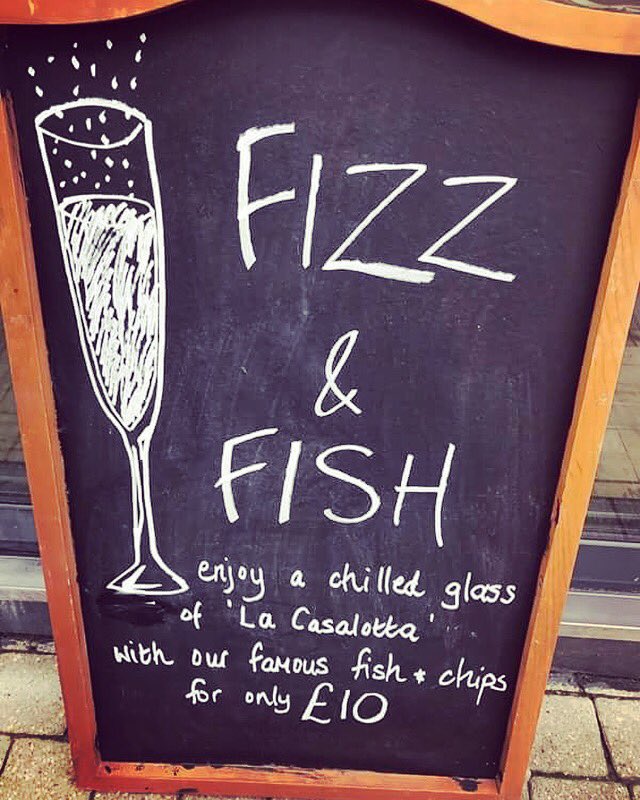 FIZZ
&
FISH
enjoy a chilled glass
of 'La Casalotta'
with our famous fish + chips
for only £10